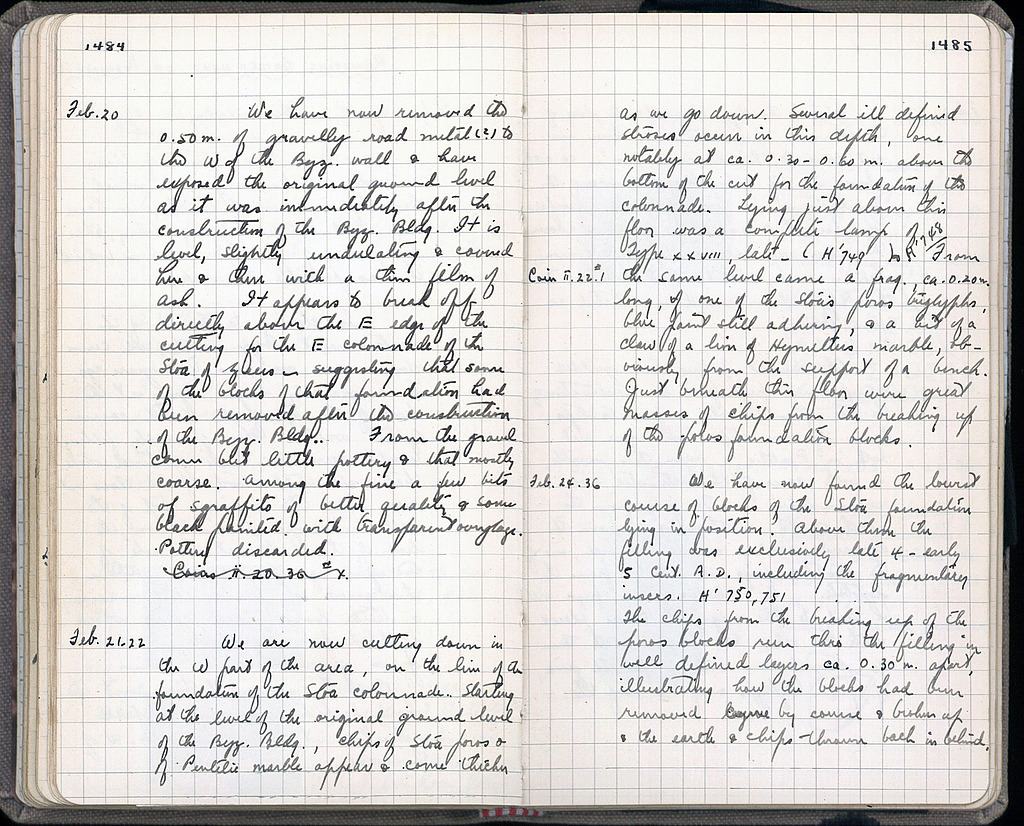 1484
Feb. 20 We have now removed the
0.50 m. of gravelly road metal (?) to
the W of the Byz. wall & have
exposed the original ground level
as it was immediately after the
construction of the Byz. Bldg. It is
level, slightly undulating & covered
here & there with a thin film of
ash. It appears to break off
directly above the E edge of the
cutting for the E colonnade of the
Stoa of Zeus – suggesting that some
of the blocks of that foundation had
been removed after the construction
of the Byz. Bldg.. From the gravel
came but little pottery & that mostly
coarse. Among the fine a few bits
of sgraffito of better quality & some
black painted with transparent overglaze.
Pottery discarded.
Coins II 20 36 # X.
Feb. 21.22 We are now cutting down in
the W part of the area, on the line of the
foundation of the Stoa colonnade. Starting
at the level of the original ground level
of the Byz. Bldg., chips of Stoa poros &
of Pentelic marble appear & come thicker
1485
as we go down. Several ill defined
stroses occur in this depth, one
notably at ca. 0.30 – 0.60 m. above the
bottom of the cut for the foundation of the
colonnade. Lying just above this
floor was a complete lamp of
Type XXVIII, late – (H'749) From
Coin II.22 #1 the same level came a frag., ca. 0.20 m.
long, of one of the Stoa's poros triglyphs,
blue paint still adhering, & a bit of a
claw of a lion of Hymettus marble, ob-
viously from the support of a bench.
Just beneath this floor were great
masses of chips from the breaking up
of the poros foundation blocks.
Feb. 24.36 We have now found the lowest
course of blocks of the Stoa foundation
lying in position. Above them the
filling was exclusively late 4 – early
5 cent. A.D., including the fragmentary
inscrs. H' 750, 751
The chips from the breaking up of the
poros blocks run thro the filling in
well defined layers ca. 0.30 m. apart,
illustrating how the blocks had been
removed course by course & broken up
& the earth & chips thrown back in behind.